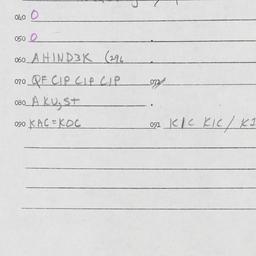 040 O
050 O
060 AHIND3K (296
070 QF CIP CIP CIP 072
080 A KU3St
090 KAC=KOC 091 KIC KIC/